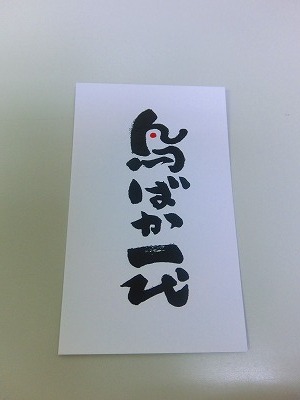 鳥ばか一代